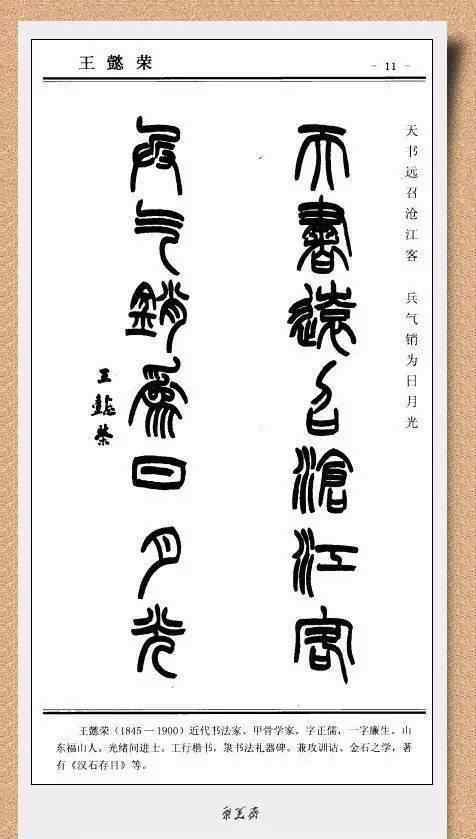 王懿荣
- 11 -
天书远召沧江客 兵气销为日月光
天書遠召滄江客
兵气銷為日月光
王懿榮
王懿荣(1845—1900)近代书法家、甲骨学家,字正儒,一字廉生,山
东福山人。光绪间进士。工行楷书,隶书法礼器碑。兼攻训诂、金石之学,著
有《汉石存目》等。